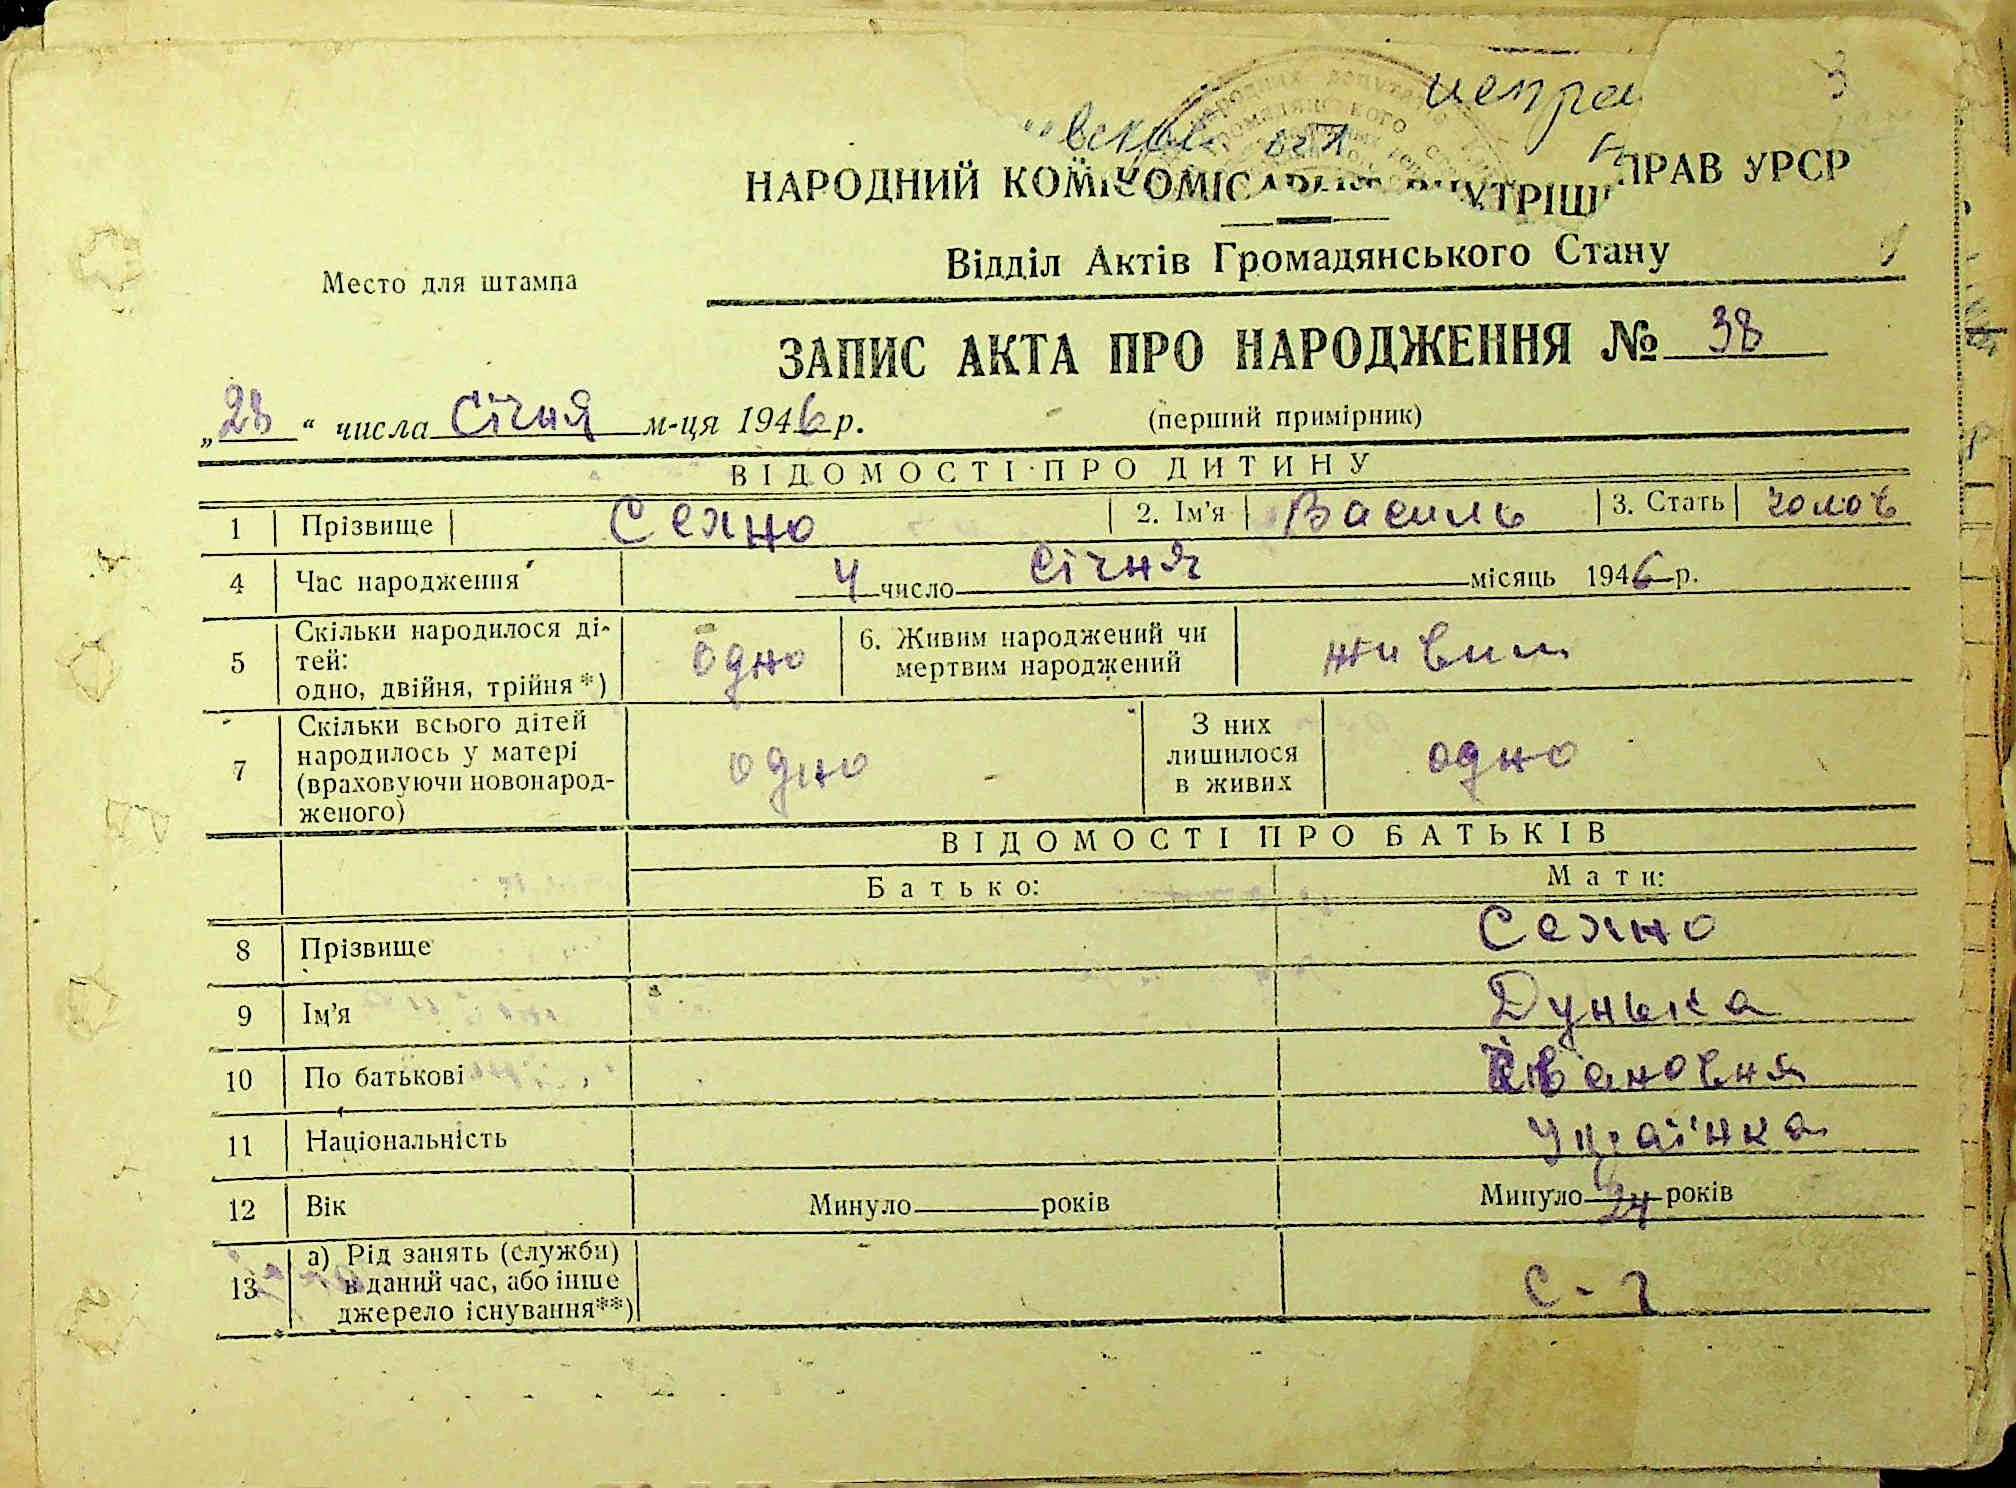 НАРОДНИЙ КОМІСАРІАТ ВНУТРІШ ПРАВ УРСР
Відділ Актів Громадянського Стану
Место для штампа
ЗАПИС АКТА ПРО НАРОДЖЕННЯ № 38
„28“ числа Січня м-ця 1946 р. (перший примірник)
ВІДОМОСТІ ПРО ДИТИНУ
1 Прізвище Сехно 2. Ім'я Василь 3. Стать чолов
4 Час народження 4 число Січня місяць 1946 р.
5 Скільки народилося ді-
тей:
одно, двійня, трійня*) одно 6. Живим народжений чи
мертвим народжений живим
7 Скільки всього дітей
народилось у матері
(враховуючи новонарод-
женого) одно З них
лишилося
в живих одно
ВІДОМОСТІ ПРО БАТЬКІВ
Батько: Мати:
8 Прізвище Сехно
9 Ім'я Дунька
10 По батькові Івановня
11 Національність Українка
12 Вік Минуло років Минуло 24 років
13 а) Рід занять (служби)
в даний час, або інше
джерело існування**) С-г